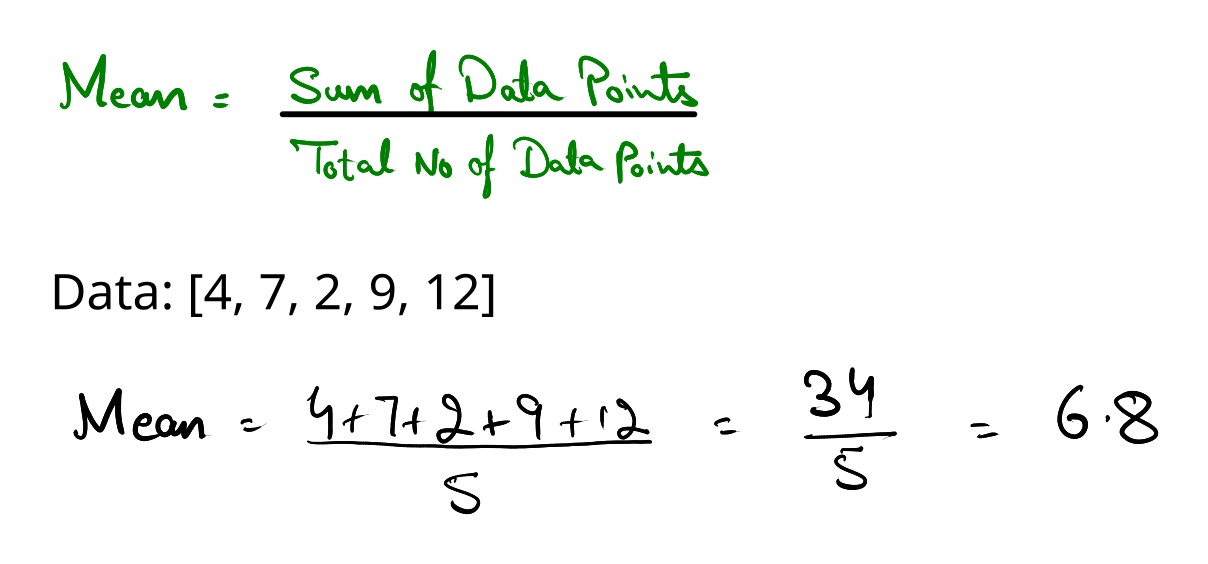 Mean = Sum of Data Points
Total No of Data Points
Data: [4, 7, 2, 9, 12]
Mean = 4+7+2+9+12 = 34 = 6.8
5 5